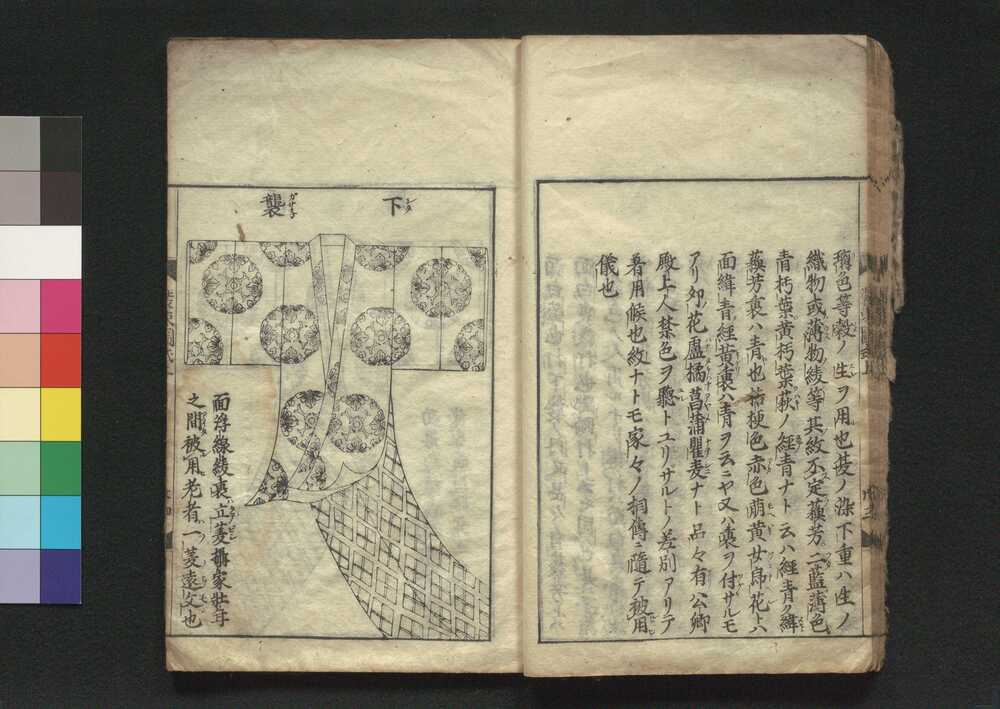 穪色等穀ノ生ヲ用也茭ノ染下重ハ生ノ
織物或薄物綾等其紋不定蘓芳二藍薄色
青朽葉黄朽葉萩ノ経青ナト云ハ経青ク緯
蘓芳裏ハ青也桔梗色赤色萠黄女郎花トハ
面緯青経黄裏ハ青ヲ云ニヤ又ハ裏ヲ付サルモ
アリ卯花盧橘菖蒲瞿麦ナト品々有公卿
殿上人禁色ヲ聽トユリサルトノ差別アリテ
着用候也紋ナトモ家々ノ相傳ニ隨テ被用
儀也
下襲
面浮線綾裏立菱攝家壮年
之間被用老者一菱遠文也